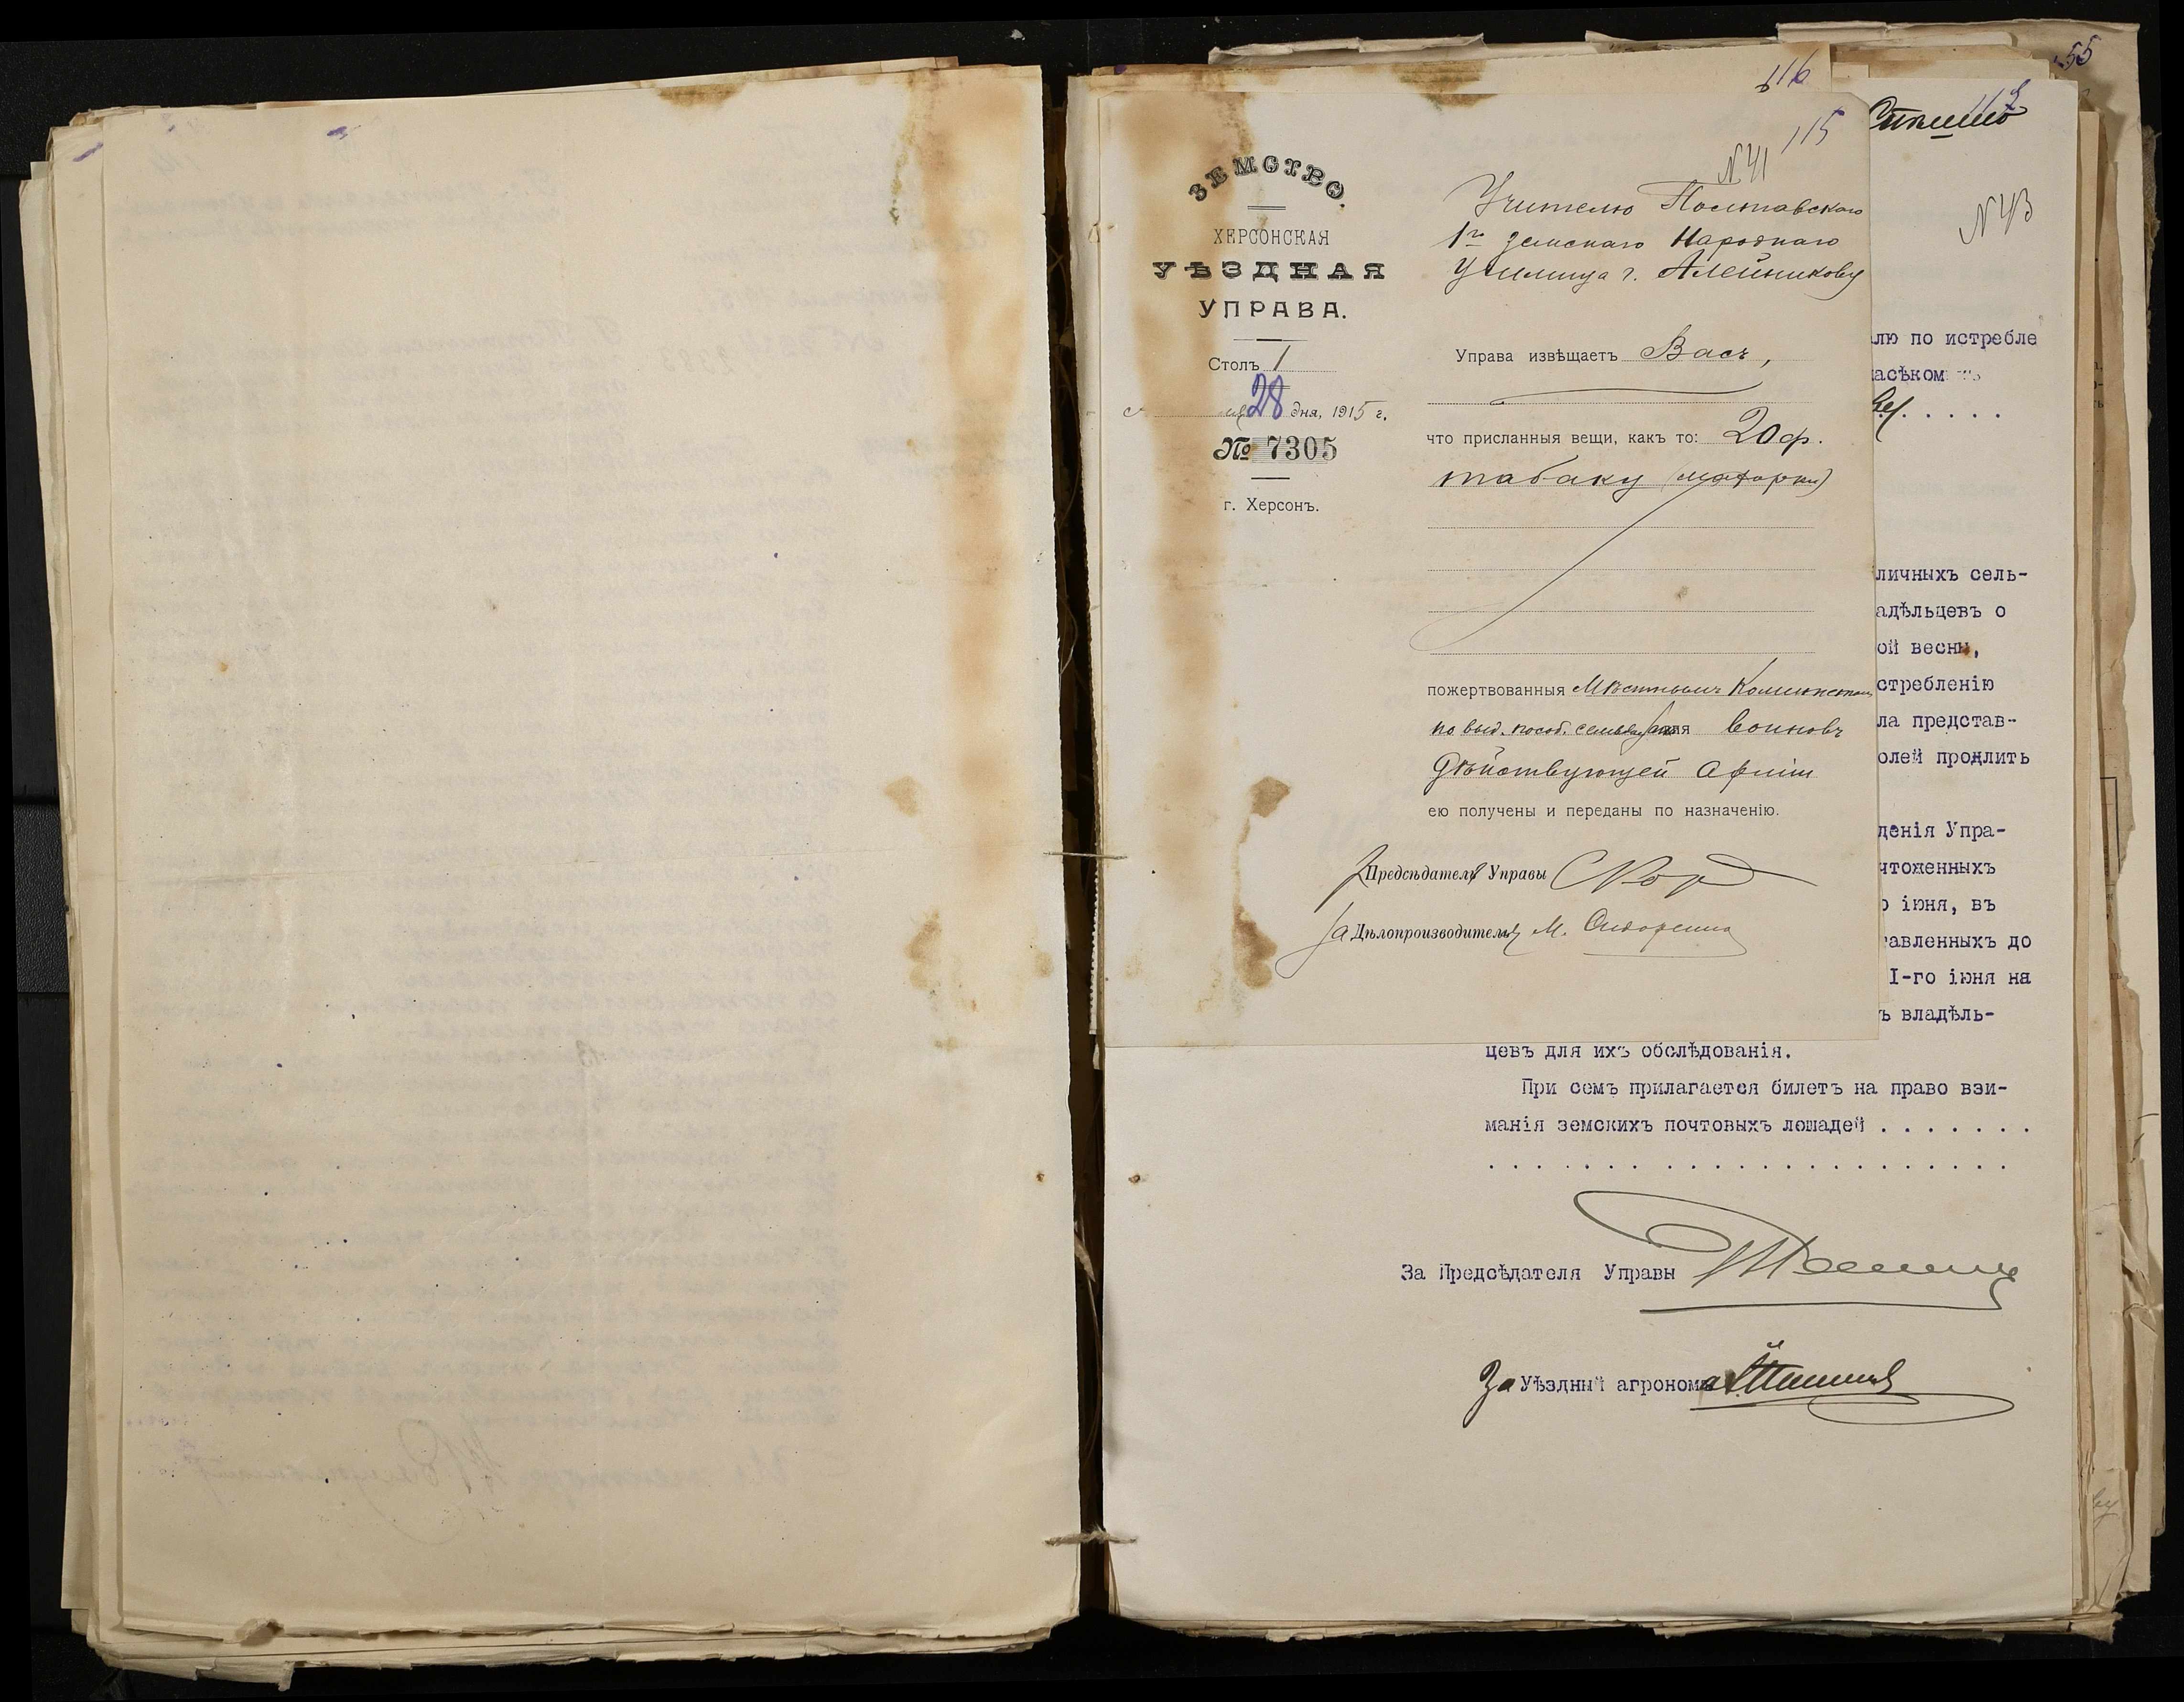 55
116
115
N 41
ЗЕМСТВО.
ХЕРСОНСКАЯ
УѢЗДНАЯ
УПРАВА.
Столъ 1
28 дня, 1915 г.
№ 7305
г. Херсонъ.
Учителю Полтавскаго
1го земскаго Народнаго
Училища г. Алейникову
Управа извѣщаетъ Васъ,
что присланныя вещи, какъ то: 20 ф.
табаку (махорки)
пожертвованныя Мѣстнымъ Комитетомъ
по выд. пособ. семьямъ для воиновъ
Дѣйствующей Арміи
ею получены и переданы по назначенію.
Предсѣдатель Управы
За Дѣлопроизводителя М. Сидоренко
N 43
лю по истребле
асѣком
личныхъ сель-
адѣльцевъ о
ой весны,
стребленію
ла представ-
олей продлить
денія Упра-
чтоженныхъ
о іюня, въ
тавленныхъ до
I-го іюня на
ъ владѣль-
цевъ для ихъ обслѣдованія.
При семъ прилагается билетъ на право взи-
манія земскихъ почтовыхъ лошадей . . . . . . .
За Предсѣдателя Управы
За Уѣздный агронома